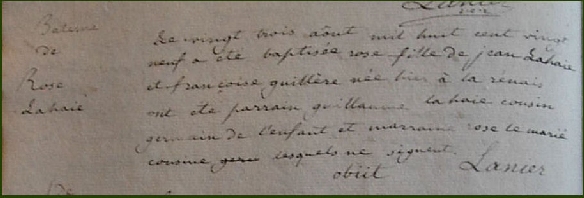 Lanier
Bateme
de
Rose
Lahaie
Le vingt trois aôut mil huit cent vingt
neuf a été baptisée rose fille de jean Lahaie
et françoise guillère née hier à la renais
ont été parrain guillaume lahaie cousin
germain de l'enfant et marraine rose le marié
cousine germ lesquels ne signent
obiit Lanier
De